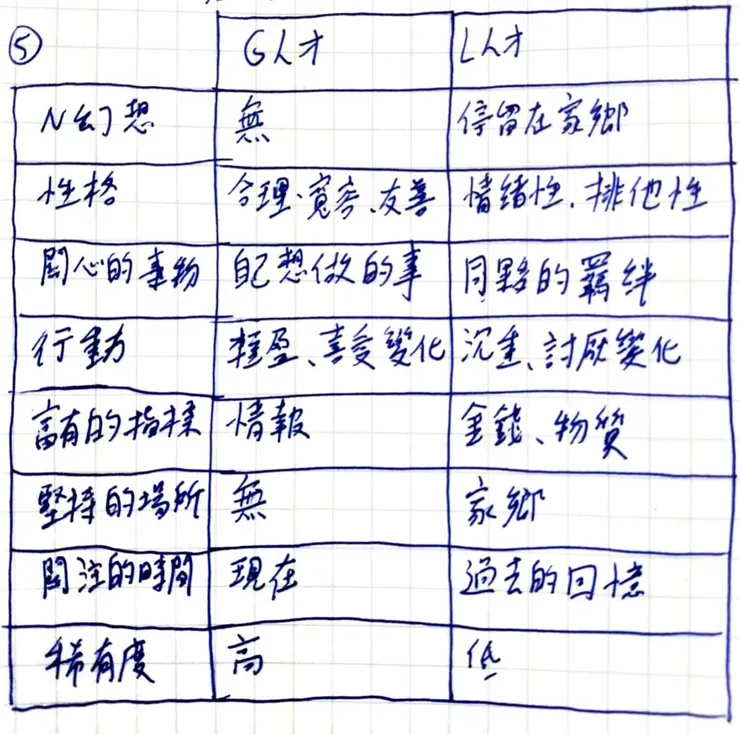 ⑤ G人才 L人才
N幻想 無 停留在家鄉
性格 合理、寬容、友善 情緒性、排他性
關心的事物 自己想做的事 同夥的羈絆
行動 輕盈、喜愛變化 沉重、討厭變化
富有的指標 情報 金錢、物質
堅持的場所 無 家鄉
關注的時間 現在 過去的回憶
稀有度 高 低